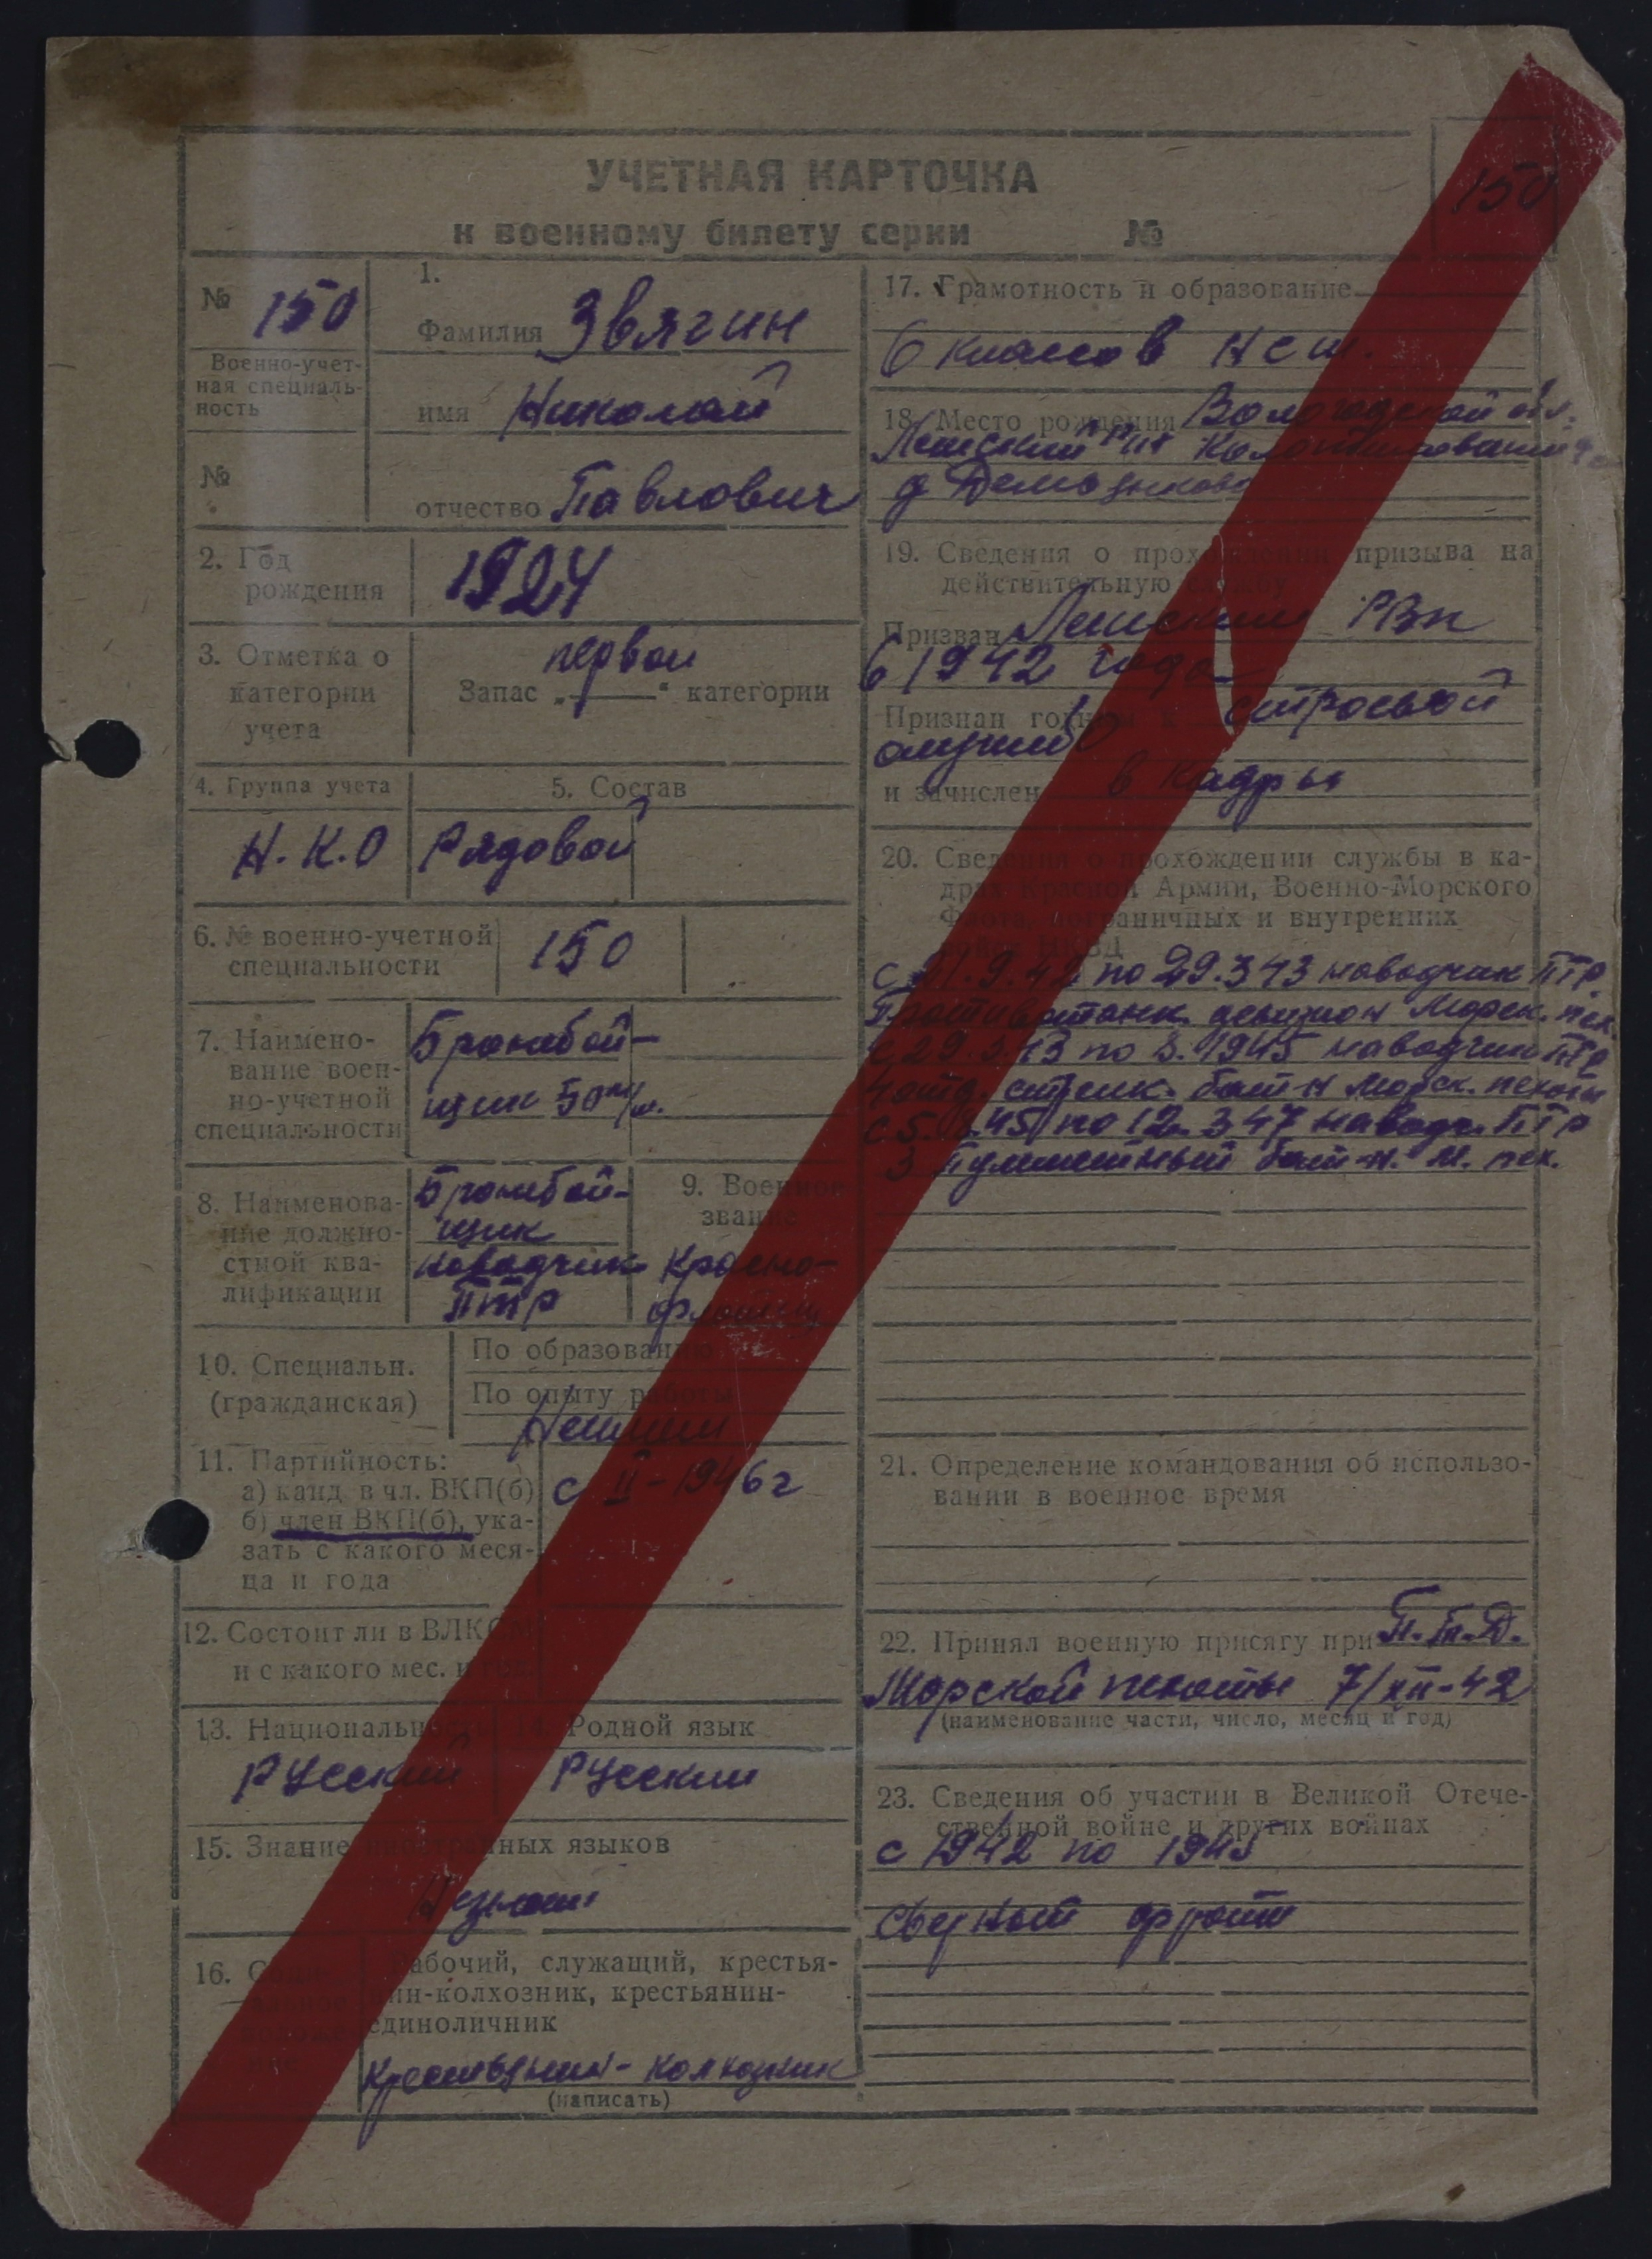 УЧЕТНАЯ КАРТОЧКА
к военному билету серии №
150
№ 150
Военно-учет-
ная специаль-
ность
№
1.
Фамилия Звягин
имя Николай
отчество Павлович
2. Год
рождения
1924
3. Отметка о
категории
учета
первой
Запас „ “ категории
4. Группа учета
Н.К.О
5. Состав
Рядовой
6. № военно-учетной
специальности
150
7. Наимено-
вание воен-
но-учетной
специальности
Бронебой-
щик 50
8. Наименова-
ние должно-
стной ква-
лификации
Бронебой-
щик
наводчик
ПТР
9. Военное
звание
Красно-
флотец
10. Специальн.
(гражданская)
По образованию
По опыту работы
11. Партийность:
а) канд. в чл. ВКП(б)
б) член ВКП(б), ука-
зать с какого меся-
ца и года
с II-1946г
12. Состоит ли в ВЛКСМ
и с какого мес. и
13. Национальность
Русский
14. Родной язык
Русский
15. Знание иностранных языков
16. Социальное положение
Рабочий, служащий, крестья-
нин-колхозник, крестьянин-
единоличник
Крестьянин-колхозник
(написать)
17. Грамотность и образование
6 классов НСШ.
18. Место рождения Вологодской обл.
19. Сведения о прохождении призыва на
действительную службу
Призван РВК
в 1942 года
Признан годным к строевой
службе
и зачислен в кадры
20. Сведения о прохождении службы в ка-
драх Красной Армии, Военно-Морского
Флота, пограничных и внутренних
войск НКВД
по 29.3.43 наводчик ПТР
Противотанк. дивизион Морск. пех.
по 1945 наводчик ПТР
4 отд. стрелк. бат-н морск. пехоты
по 12.3.47 наводч. ПТР
3 Пулеметный бат-н. м. пех.
21. Определение командования об использо-
вании в военное время
22. Принял военную присягу при П.т.Д.
Морской пехоты 7/XII-42
(наименование части, число, месяц и год)
23. Сведения об участии в Великой Отече-
ственной войне и других войнах
с 1942 по 1945
фронт